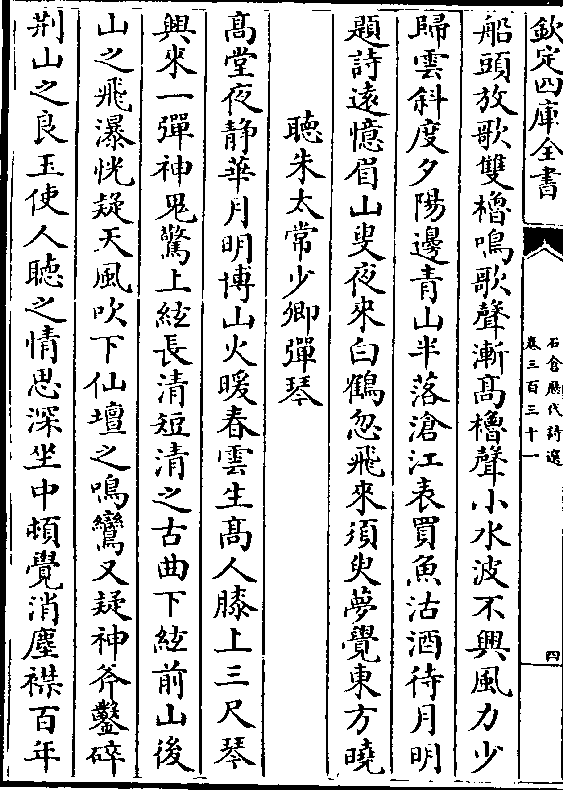 欽定四庫全書
石倉歷代詩選
卷三百三十一
四
船頭放歌雙櫓鳴歌聲漸髙櫓聲小水波不興風力少
歸雲斜度夕陽邊青山半落滄江表買魚沽酒待月明
題詩遠憶眉山叟夜來白鶴忽飛來須臾夢覺東方曉
聽朱太常少卿彈琴
髙堂夜静華月明博山火暖春雲生髙人膝上三尺琴
興來一彈神鬼驚上絃長清短清之古曲下絃前山後
山之飛瀑恍疑天風吹下仙壇之鳴鸞又疑神斧鑿碎
荆山之良玉使人聽之情思深坐中頓覺消塵襟百年